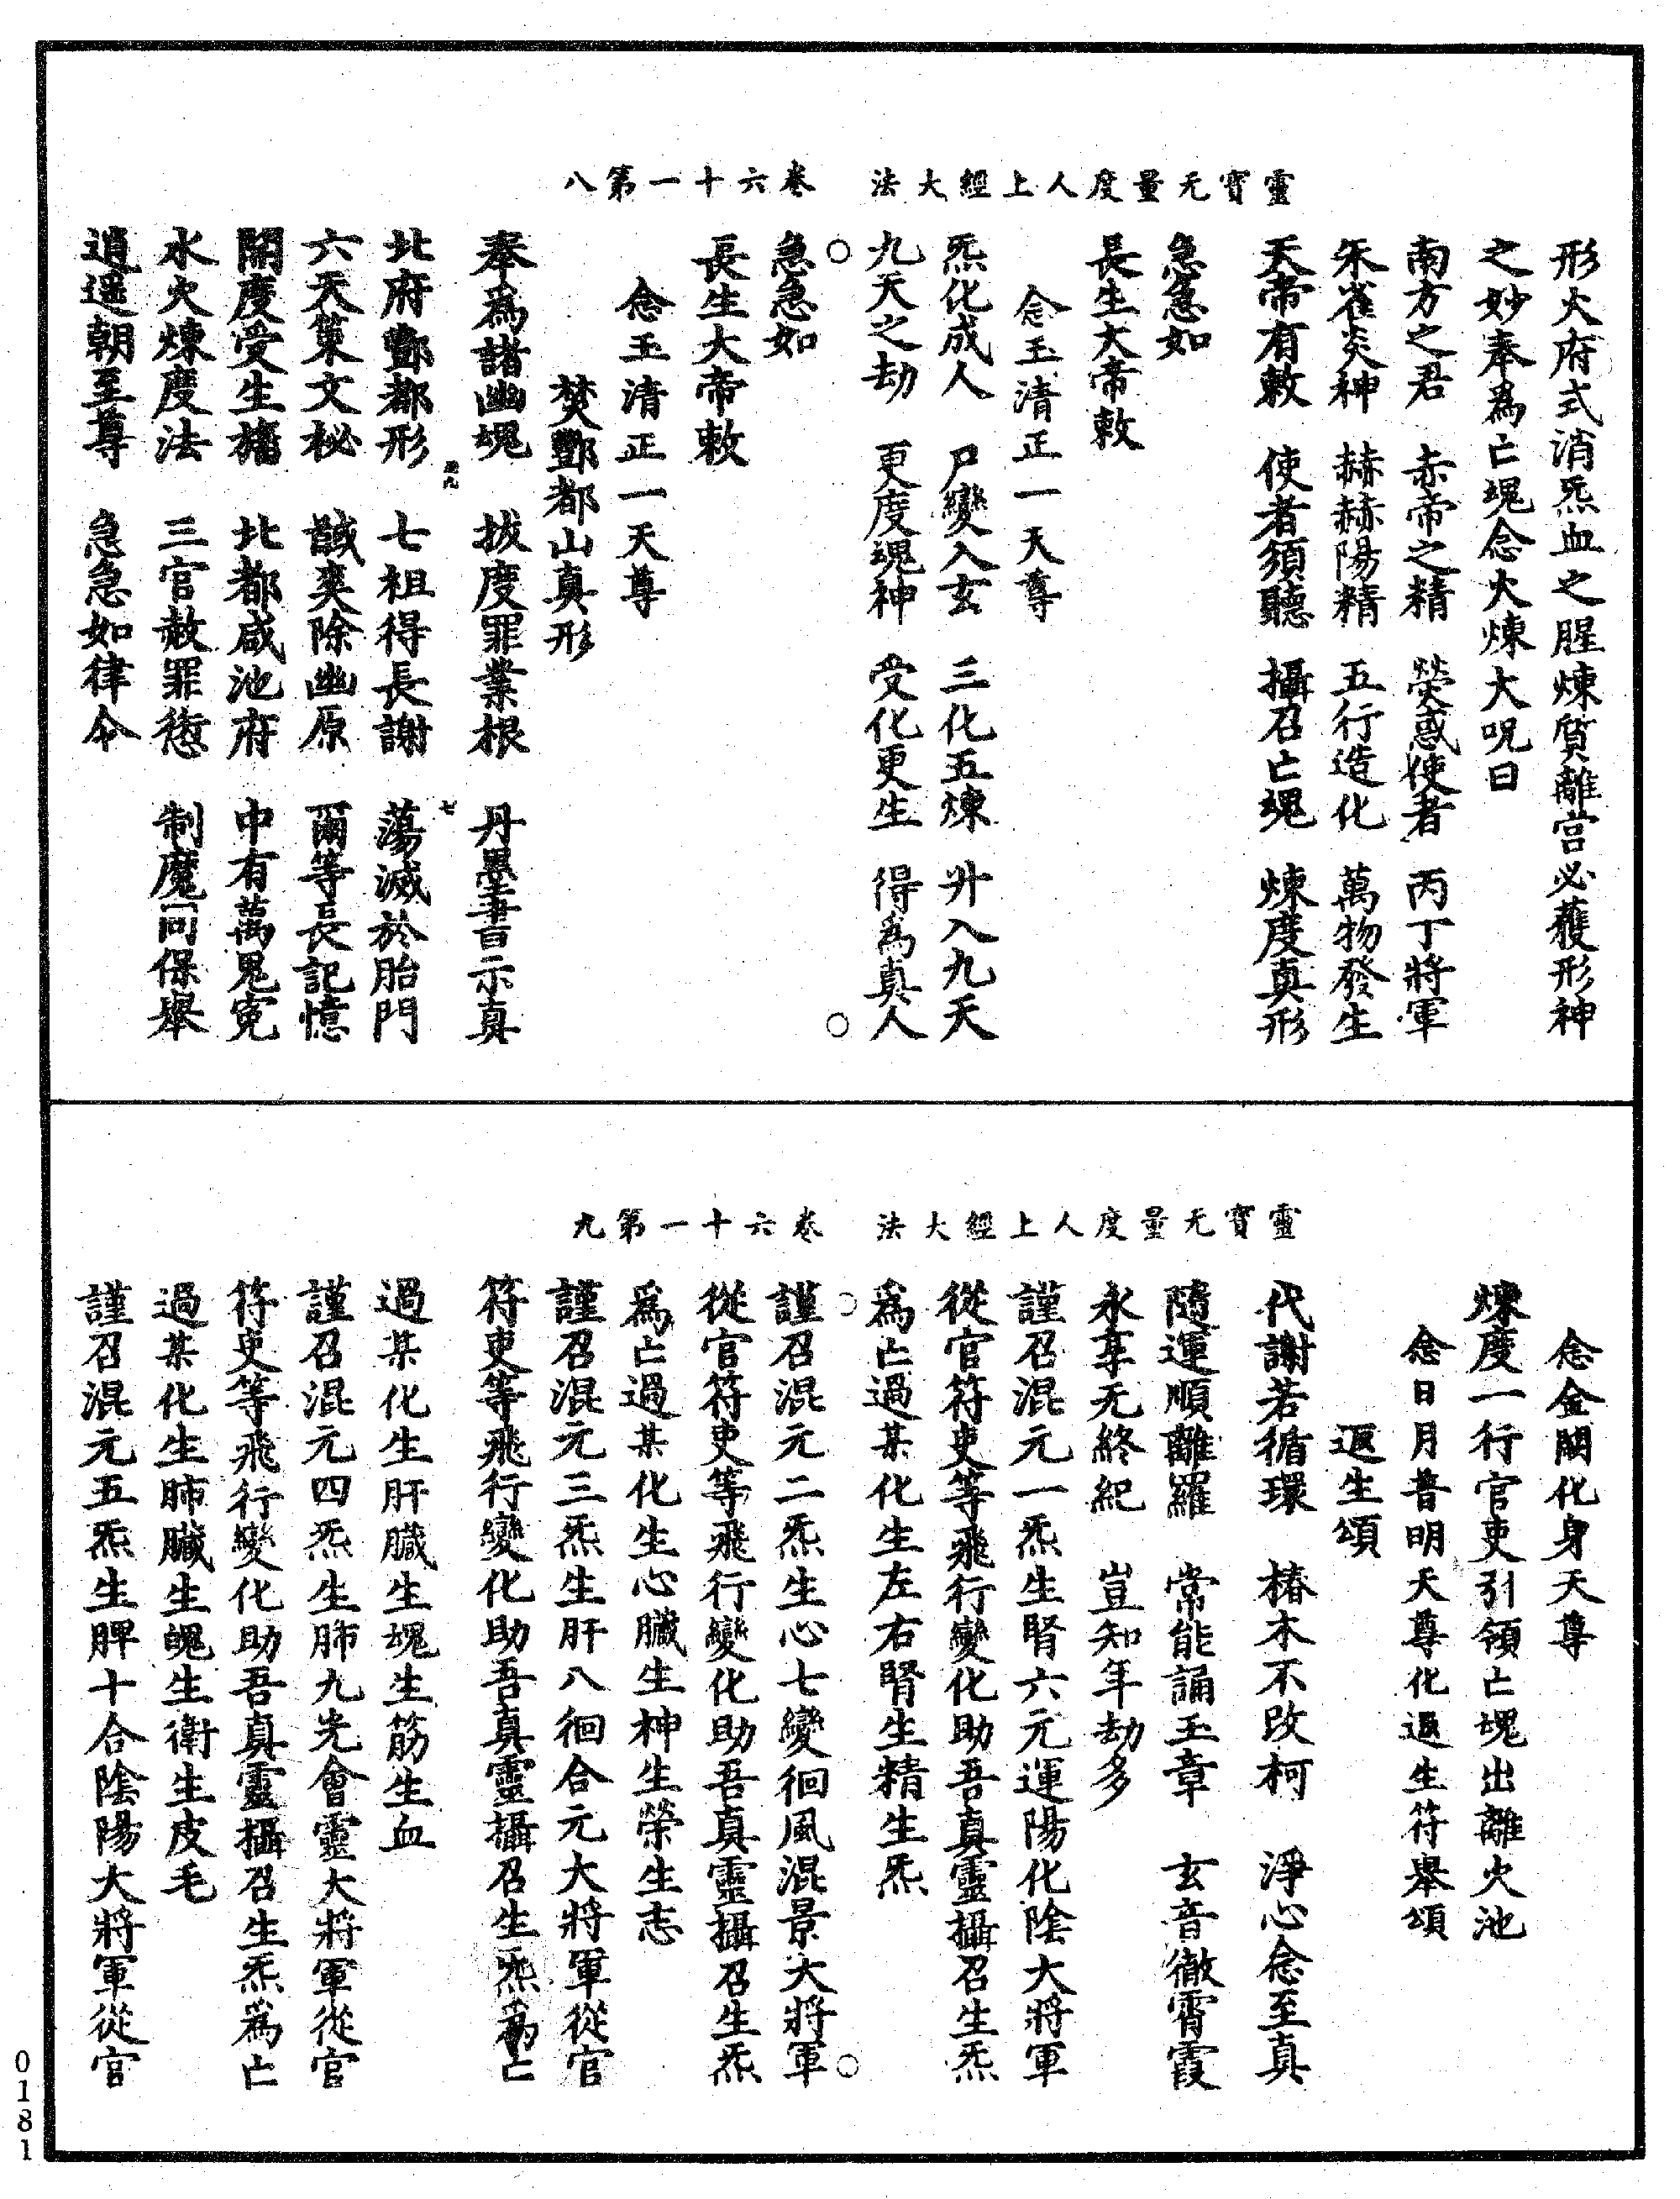 靈寶无量度人上經大法　卷六十一第八
形火府式消炁血之腥煉質離宫必蒦形神
之妙奉爲亡魂念火煉大呪曰
南方之君　赤帝之精　熒惑使者　丙丁將軍
朱雀炎神　赫赫陽精　五行造化　萬物發生
天帝有敕　使者須聽　攝召亡魂　煉度真形
急急如
長生大帝敕
念玉清正一天尊
炁化成人　尸變入玄　三化五煉　升入九天
九天之劫　更度魂神　受化更生　得爲真人
急急如
長生大帝敕
念玉清正一天尊
焚酆都山真形
奉爲諸幽魂　拔度罪業根　丹墨書示真
北府酆都形　七祖得長謝　蕩滅於胎門
六天策文秘　馘爽除幽原　爾等長記憶
開度受生旛　北都咸池府　中有萬鬼寃
水火煉度法　三官赦罪愆　制魔同保舉
逍遥朝至尊　急急如律令
靈寶无量度人上經大法　卷六十一第九
念金闕化身天尊
煉度一行官吏引領亡魂出離火池
念日月普明天尊化還生符舉頌
還生頌
代謝若循環　椿木不改柯　淨心念至真
隨運順離羅　常能誦玉章　玄音徹霄霞
永享无終紀　豈知年劫多
謹召混元一炁生腎六元運陽化陰大將軍
從官符吏等飛行變化助吾真靈攝召生炁
爲亡過某化生左右腎生精生炁
謹召混元二炁生心七變徊風混景大將軍
從官符吏等飛行變化助吾真靈攝召生炁
爲亡過某化生心臟生神生榮生志
謹召混元三炁生肝八徊合元大將軍從官
符吏等飛行變化助吾真靈攝召生炁爲亡
過某化生肝臟生魂生筋生血
謹召混元四炁生肺九光會靈大將軍從官
符吏等飛行變化助吾真靈攝召生炁爲亡
過某化生肺臟生魄生衛生皮毛
謹召混元五炁生脾十合陰陽大將軍從官
0181